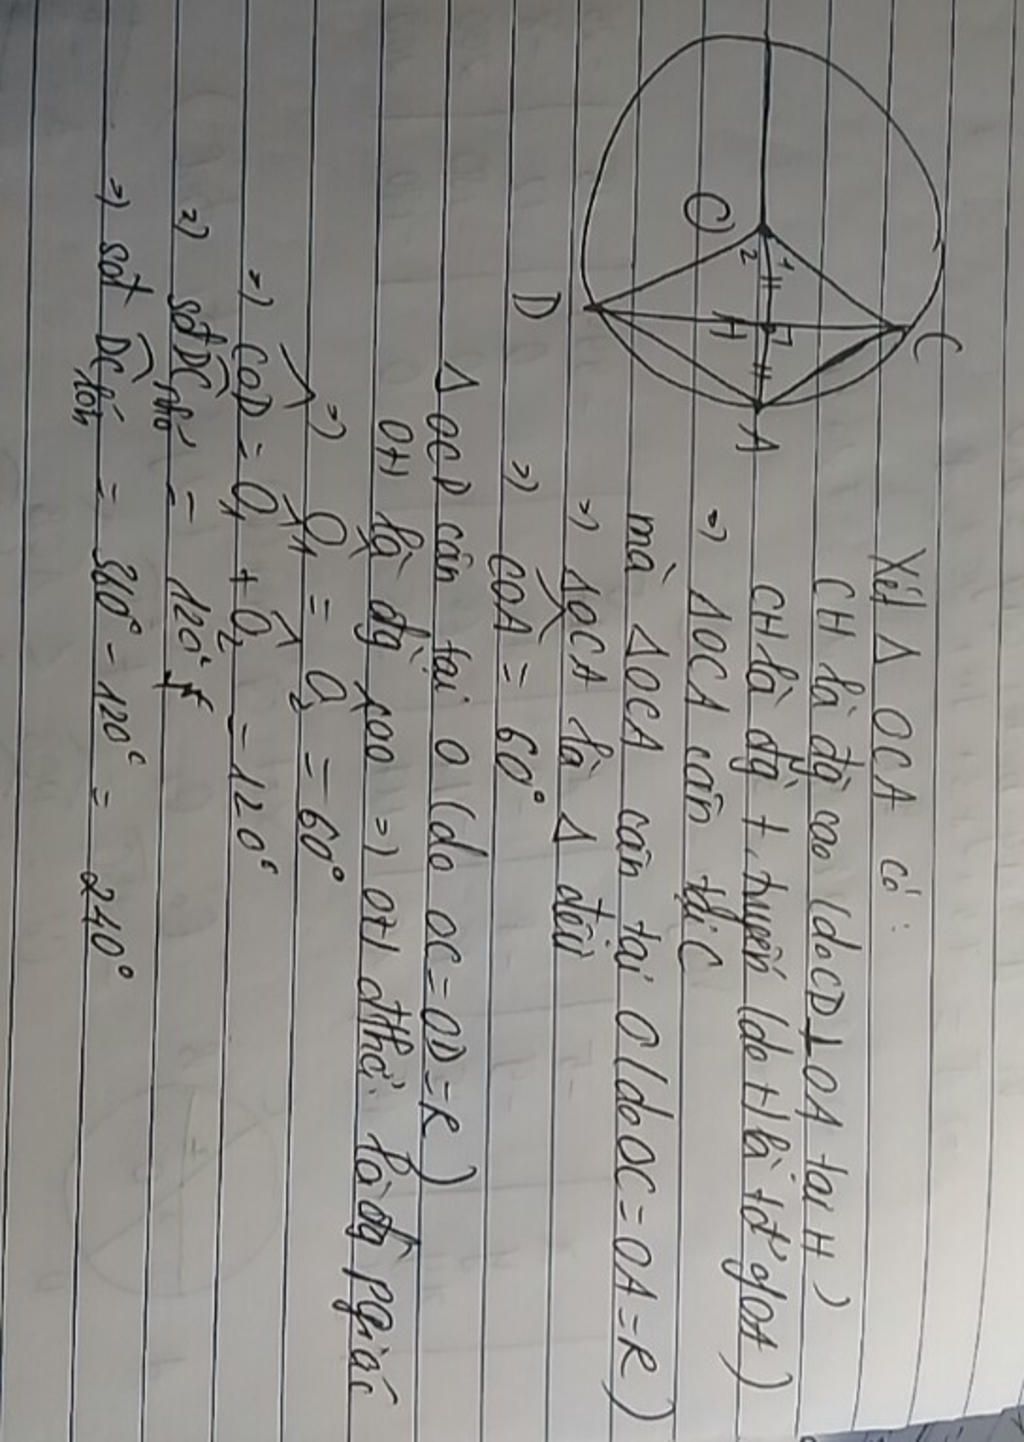 C
O
1
2
H
A
D
Xét Δ OCA có:
CH là đg cao (do CD⊥OA tại H)
CH là đg t.tuyến (do H là tđ' OA)
=) ΔOCA cân tại C
mà ΔOCA cân tại O (do OC=OA=R)
=) ΔOCA là Δ đều
=) \widehat{COA} = 60°
ΔOCD cân tại O (do OC=OD=R)
OH là đg cao =) OH đthời là đg pgiác
=) \widehat{O_1} = \widehat{O_2} = 60°
=) \widehat{COD} = \widehat{O_1} + \widehat{O_2} = 120°
=) sđ \overset{\frown}{DC} nhỏ = 120°
=) sđ \overset{\frown}{DC} lớn = 360° - 120° = 240°